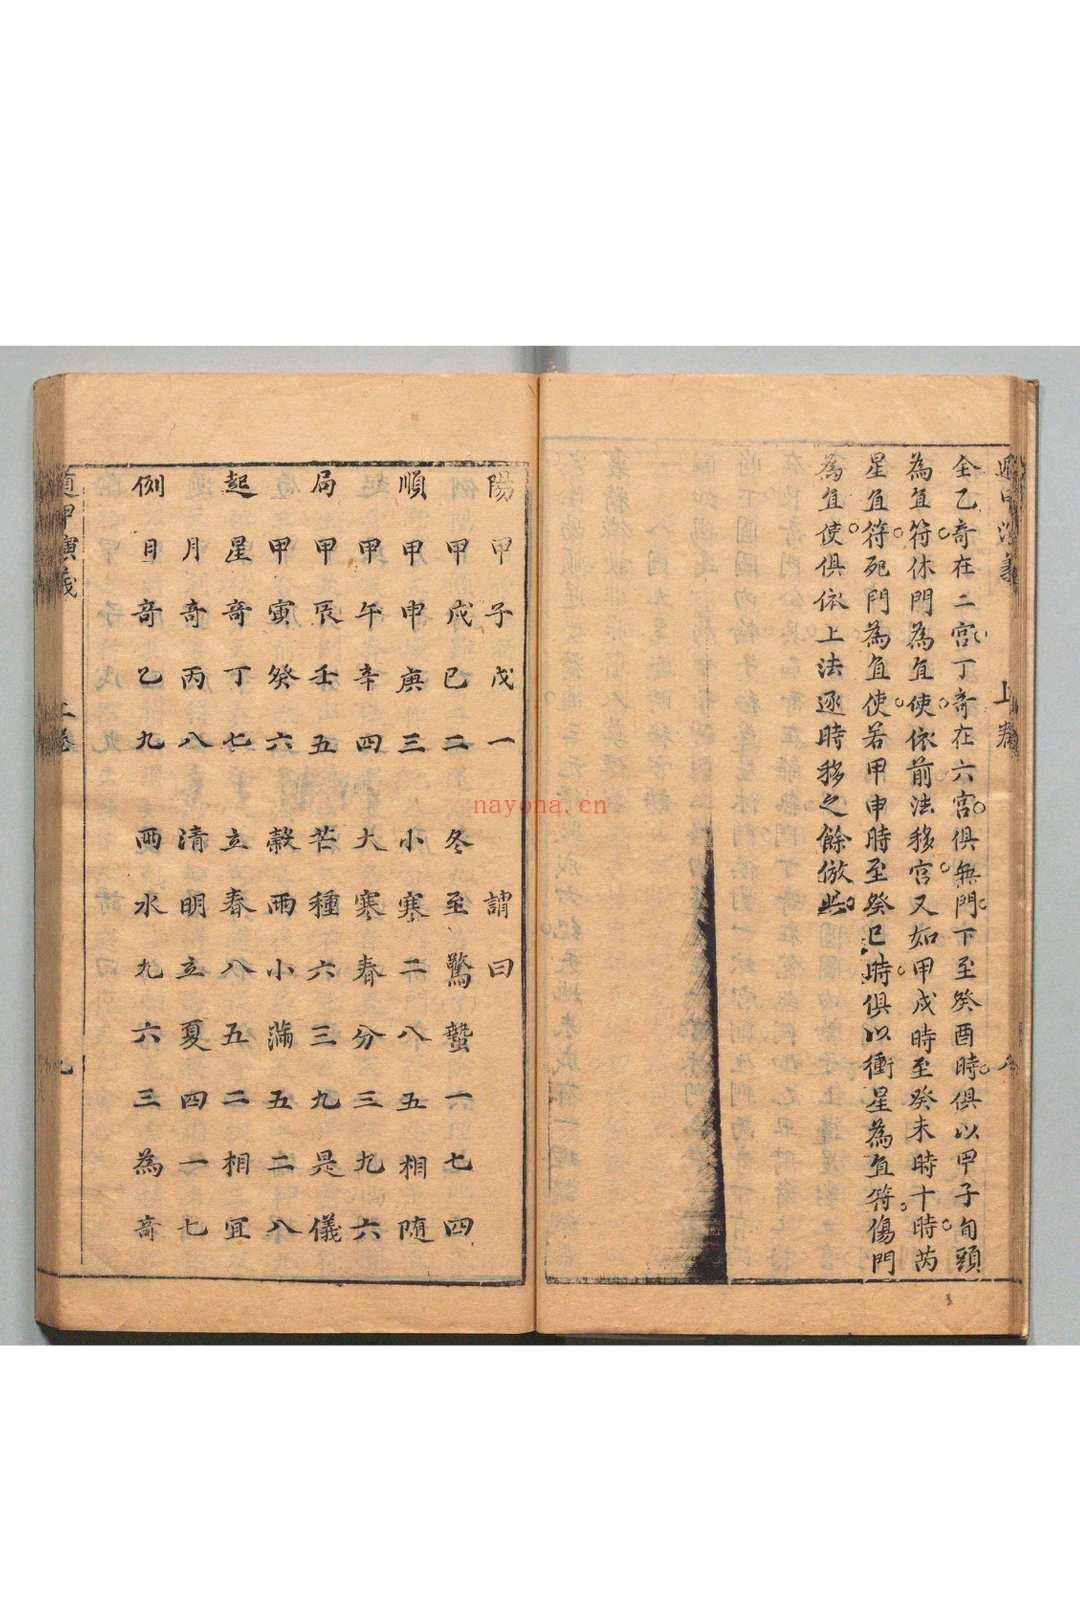 遁甲演義 上卷 八
全乙奇在二宮丁奇在六宮俱無門下至癸酉時俱以甲子旬頭
為直符休門為直使依前法移宮又如甲戌時至癸未時十時芮
星直符死門為直使若甲申時至癸巳時俱以衝星為直符傷門
為直使俱依上法逐時移之餘倣此
陽甲子戊一 謂曰
甲戌己二 冬至驚蟄一七四
順甲申庚三 小寒二八五相隨
甲午辛四 大寒春分三九六
局甲辰壬五 芒種六三九是儀
甲寅癸六 穀雨小滿五二八
起星奇丁七 立春八五二相宜
月奇丙八 清明立夏四一七
例日奇乙九 雨水九六三為奇
遁甲演義 上卷 九
nayona.cn